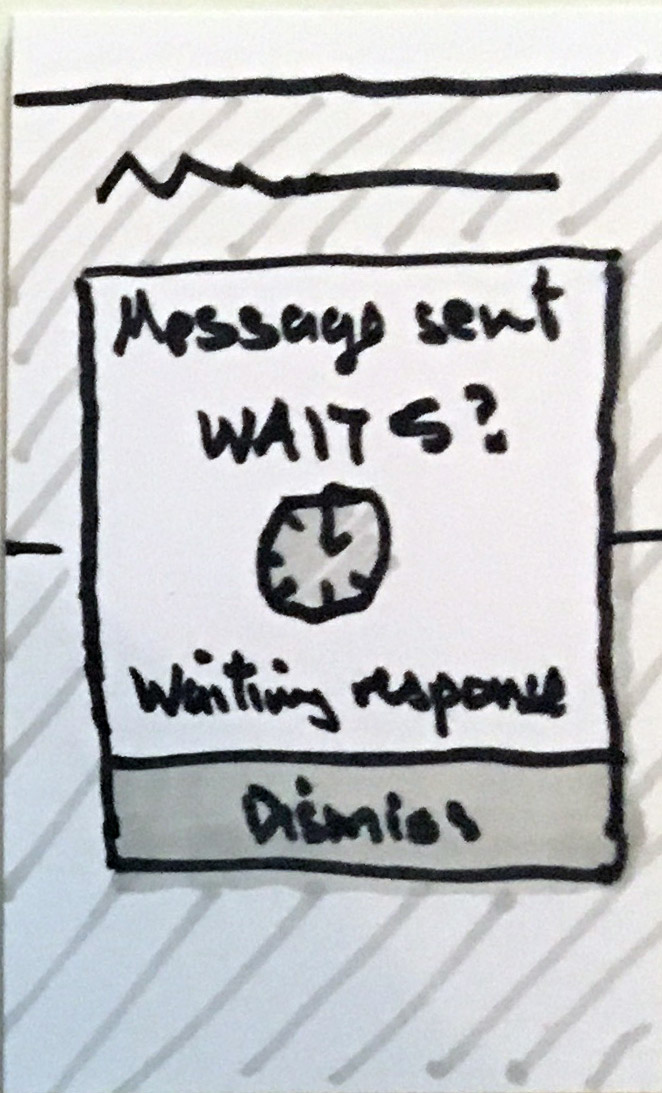 Message sent
WAITS?
Waiting response
Dismiss